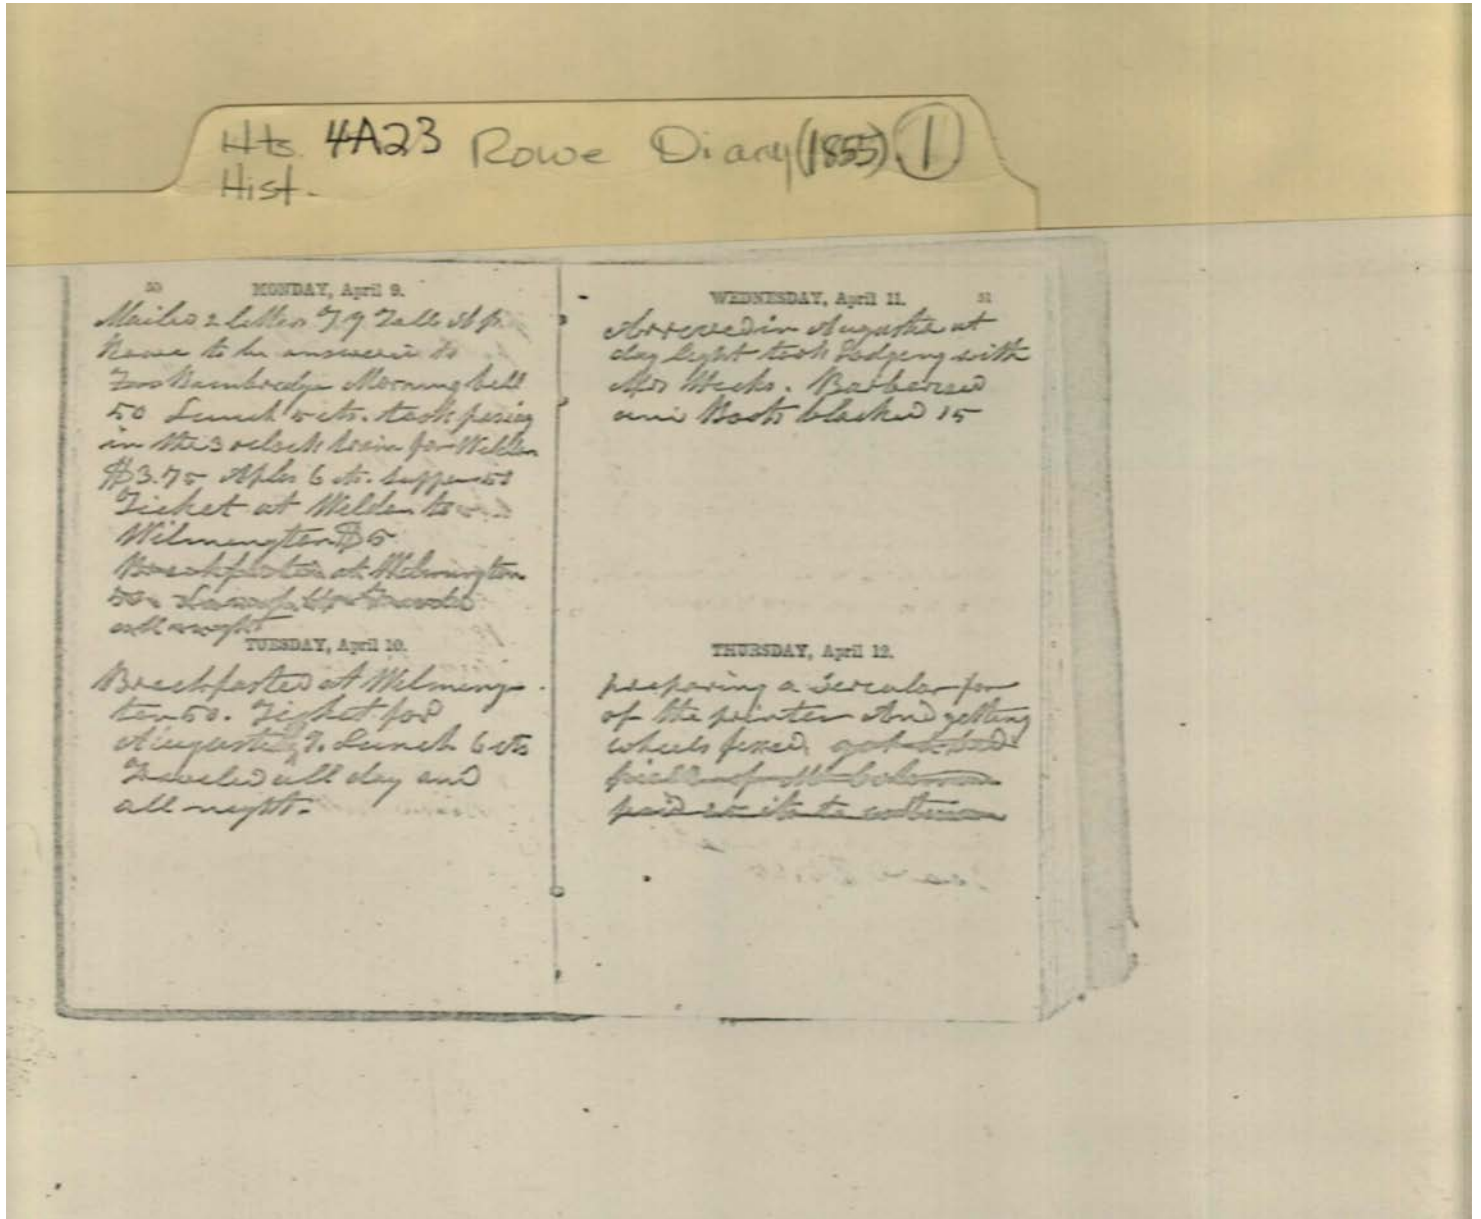 Hts 4A23 Rowe Diary (1855) 1
Hist.
50 MONDAY, April 9.
Mailed 2 letters
to be answered to
Morning bill
50 Lunch 5 cts. took
in the 3 oclock train for Weldon
$3.75 Aples 6 cts. Supper 50
Ticket at Weldon to
Wilmington $5
Breckfasted at Wilmington
50
all night
TUESDAY, April 10.
Breckfasted at Wilming-
ton 50. Ticket for
Augusta 9. Lunch 6 cts
Traveled all day and
all night.
WEDNESDAY, April 11. 51
Arrived in Augusta at
day light took Lodging with
Mrs Weeks. Barbered
and Boots blacked 15
THURSDAY, April 12.
preparing a Sercular for
of the printer And getting
wheels fixed, got a bad
of
paid 25 cts to